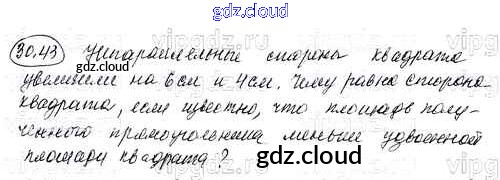 gdz.cloud
30.43 Непараллельные стороны квадрата
gdz.cloud
увеличили на 6см и 4см. Чему равна сторона
квадрата, если известно, что площадь полу-
ченного прямоугольника меньше удвоенной
площади квадрата?
gdz.cloud